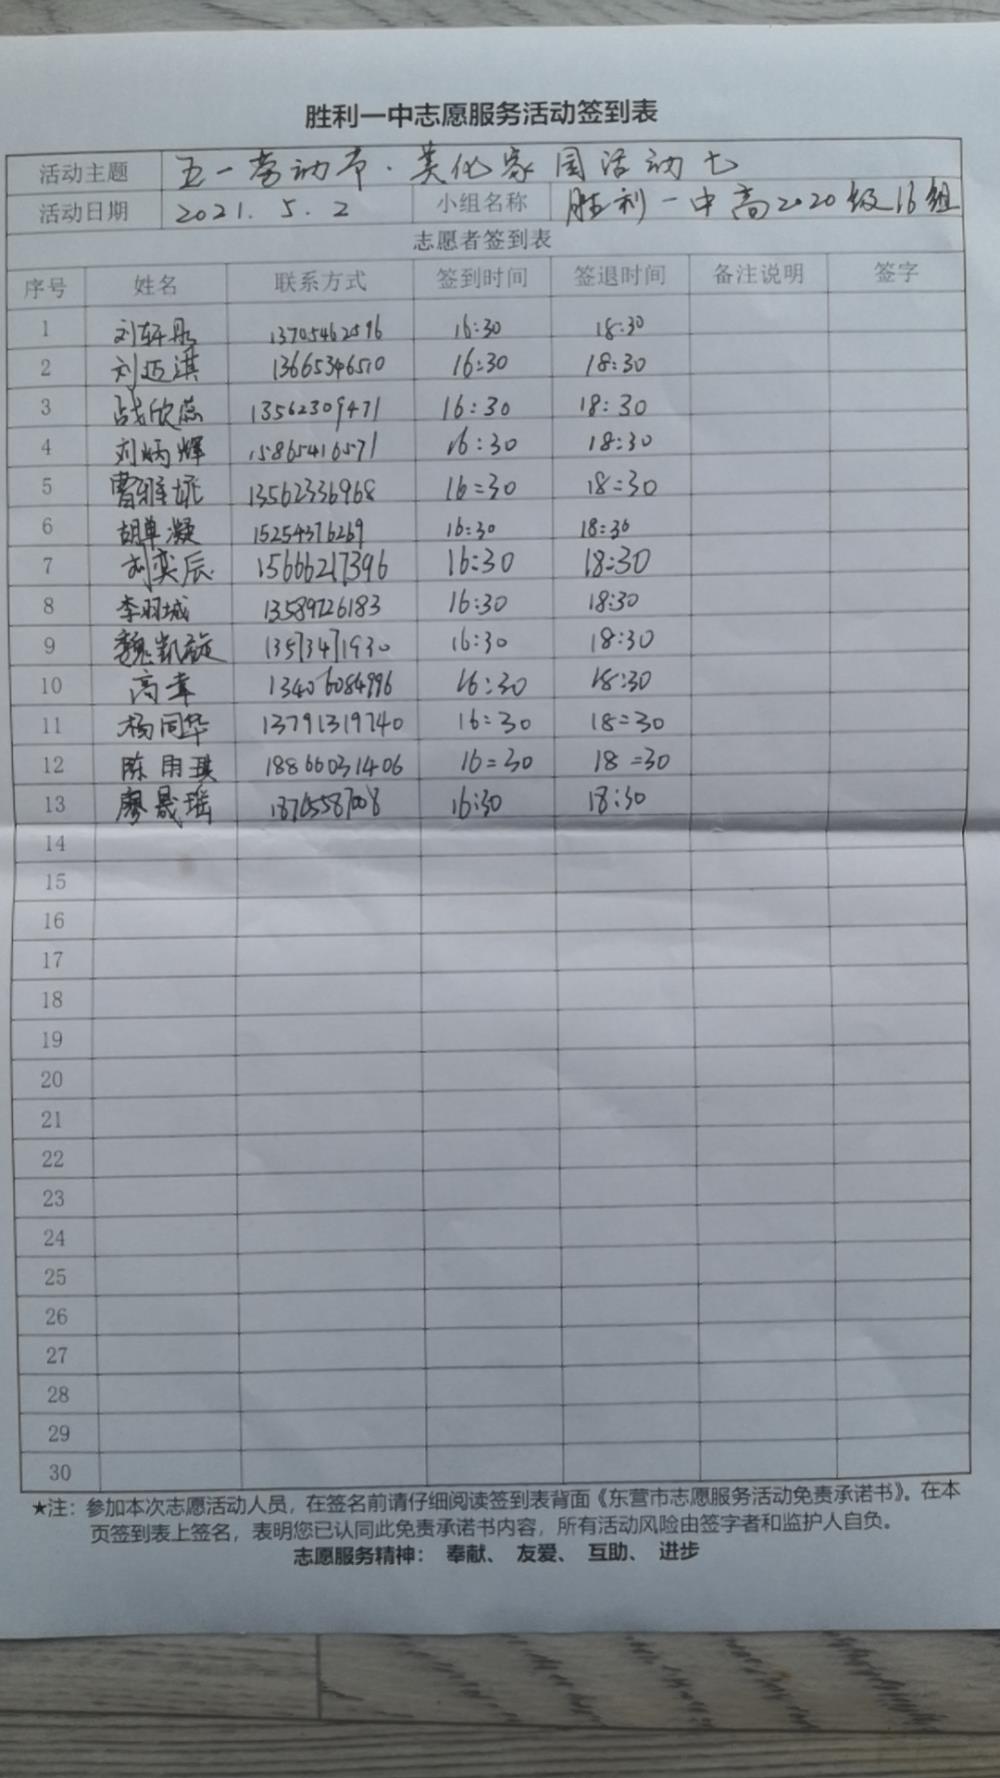 胜利一中志愿服务活动签到表
活动主题 五一劳动节·美化家园活动七
活动日期 2021.5.2 小组名称 胜利一中高2020级16组
志愿者签到表
序号 姓名 联系方式 签到时间 签退时间 备注说明 签字
1 刘轩彤 13705462596 16:30 18:30
2 刘迈淇 13665346510 16:30 18:30
3 战欣蕊 13562309471 16:30 18:30
4 刘炳辉 15865416571 16:30 18:30
5 曹雅 13562336968 16:30 18:30
6 胡单凝 15254376269 16:30 18:30
7 刘奕辰 15666217396 16:30 18:30
8 李羽城 13589726183 16:30 18:30
9 魏凯旋 13573471930 16:30 18:30
10 高幸 13406084996 16:30 18:30
11 杨同华 13791319740 16:30 18:30
12 陈雨琪 18866031406 16:30 18:30
13 廖晟瑶 16:30 18:30
14
15
16
17
18
19
20
21
22
23
24
25
26
27
28
29
30
★注：参加本次志愿活动人员，在签名前请仔细阅读签到表背面《东营市志愿服务活动免责承诺书》。在本
页签到表上签名，表明您已认同此免责承诺书内容，所有活动风险由签字者和监护人自负。
志愿服务精神： 奉献、 友爱、 互助、 进步